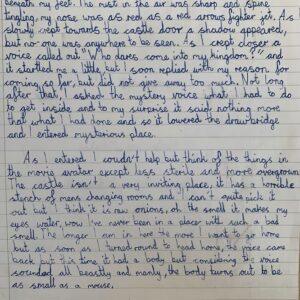 beneath my feet. The mist in the air was sharp and spine
tingling, my nose was as red as a red arrows fighter jet. As
slowly crept towards the castle door a shadow appeared,
but no one was anywhere to be seen. As I crept closer a
voice called out "Who dares come into my kingdom?" and
it startled me a little but I soon replied with my reason for
coming so far, but did not give away too much. Not long
after that I asked the mystery voice what I had to do
to get inside and to my surprise it said nothing more
that what I had done and so it lowered the drawbridge
and I entered mysterious place.
As I entered I coudn't help but think of the things in
the movie avatar except less sterile and more overgrown.
The castle isn't a very inviting place, it has a horrible
stench of mens changing rooms and I can't quite pick it
out but I think it is raw onions, oh the smell it makes my
eyes water, wow I've never been in a place with such a bad
smell. The longer I am in here the more I want to go home
but as soon as I turned round to head home, the voice came
back but this time it had a body but considering the voice
sounded all beastly and manly, the body turns out to be
as small as a mouse.